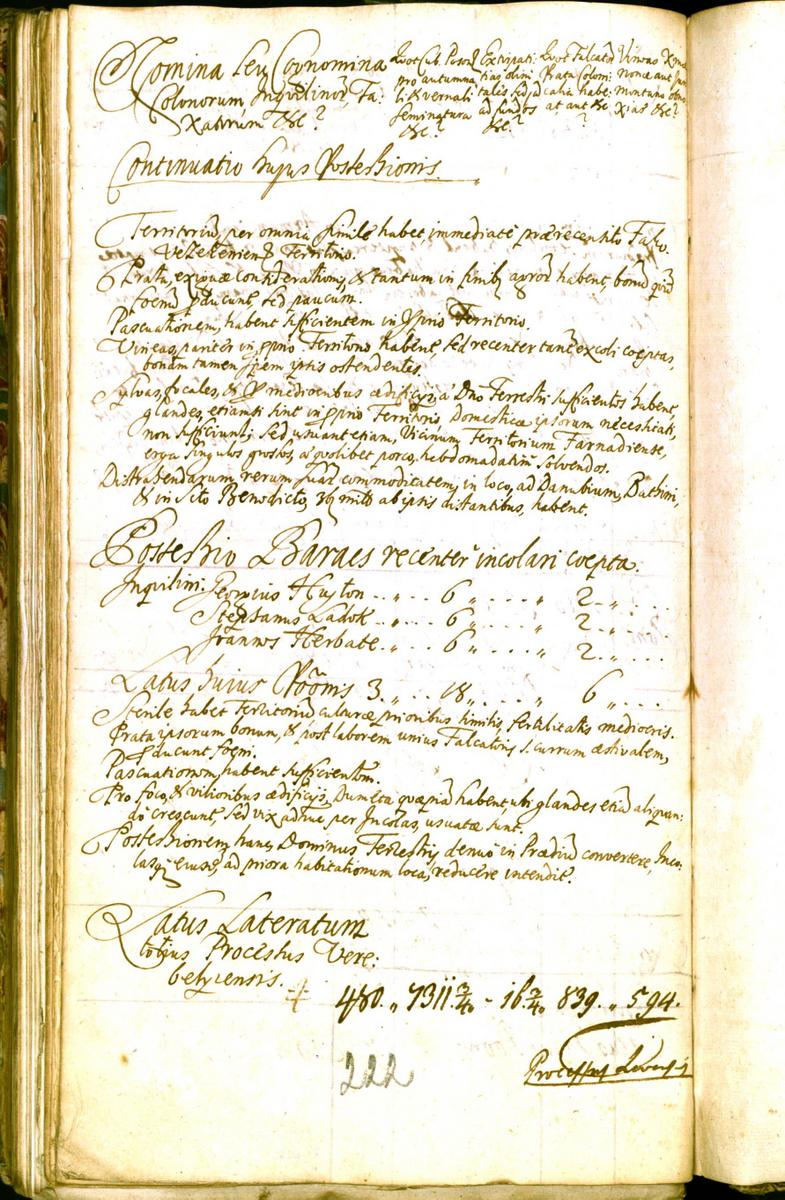 Nomina seu Cognomina
Colonorum, Inquilinorũ Ta:
xatorum &c?
Quot Cub. Poson
pro autumna
li & vernali
seminatura
&c?
Extirpati:
tias olim
talis
ad fundos
&c?
Quot Falcatorũ
Prata Colom:
calia habe:
at aut &c
?
Vineas
nonae aut
montano
xias &c?
Continuatio hujus Possessionis.
Territoriũ, per omnia simile habet, immediatè praerecensito
Vezekeniens Territorio.
Prata, exiguae considerationis, & tantum in finibꝫ agrorũ habent, bonũ quid
foenũ ꝓducunt, sed paucum.
Pascuationem, habent sufficientem in ꝓprio Territorio.
Vineas, pariter in ꝓprio Territorio habent, sed recenter tanṫ excoli coeptas,
bonam tamen spem ipsis ostendentes.
Sylvas, focales, & ꝓ mediocribus aedificijs, à Dno Terrestri sufficientes habent,
glandes, etiamsi sint in ꝓprio Territorio, Domesticae ipsorum necessitati,
non sufficiunt; sed usuant etiam, Vicinum, Territorium Farnadiense,
erga singulos grossos, à quolibet porco, hebdomadatim solvendos.
Distrahendarum, rerum suarũ commoditatem, in loco, ad Danubium, Bathini,
& in Sto Benedicto, 3bꝫ mill: ab ipsis distantibus, habent.
Possessio Baraes recenter incolari coepta.
Inquilini: Georgius Huyton .. „ .. 6 „ .... „ 2 .. „ ...
Stephanus Ladok .. „ .. 6 „ .... „ 2 .. „ ...
Joannes Herbate .. „ .. 6 „ .... „ 2 .. „ ...
Latus hujus Poõnis 3. „ .. 18 „ .... „ 6 „ ...
Sterile habet Territoriũ culturae, prioribus similis, fertilitatis mediocris.
Prata ipsorum bonum, & post laborem unius Falcatoris 1. currum aestivalem,
ꝓducunt foeni.
Pascuationem, habent sufficientem.
Pro foco, & vilioribus aedificijs, Dumeta quaepiã habent, ubi glandes etiã aliquan:
do crescunt, sed vix adhuc per Incolas, usuatae sunt.
Possessionem, hanc, Dominus Terrestris, denuò in Praediũ convertere, Inco:
lasqꝫ ejus, ad priora habitationum loca, reducere intendit.
Latus Lateratum
totius Processus Vere:
belyiensis.
480. „ 7311 3/4 - 16 3/4 839. „ 594.
222
Processus